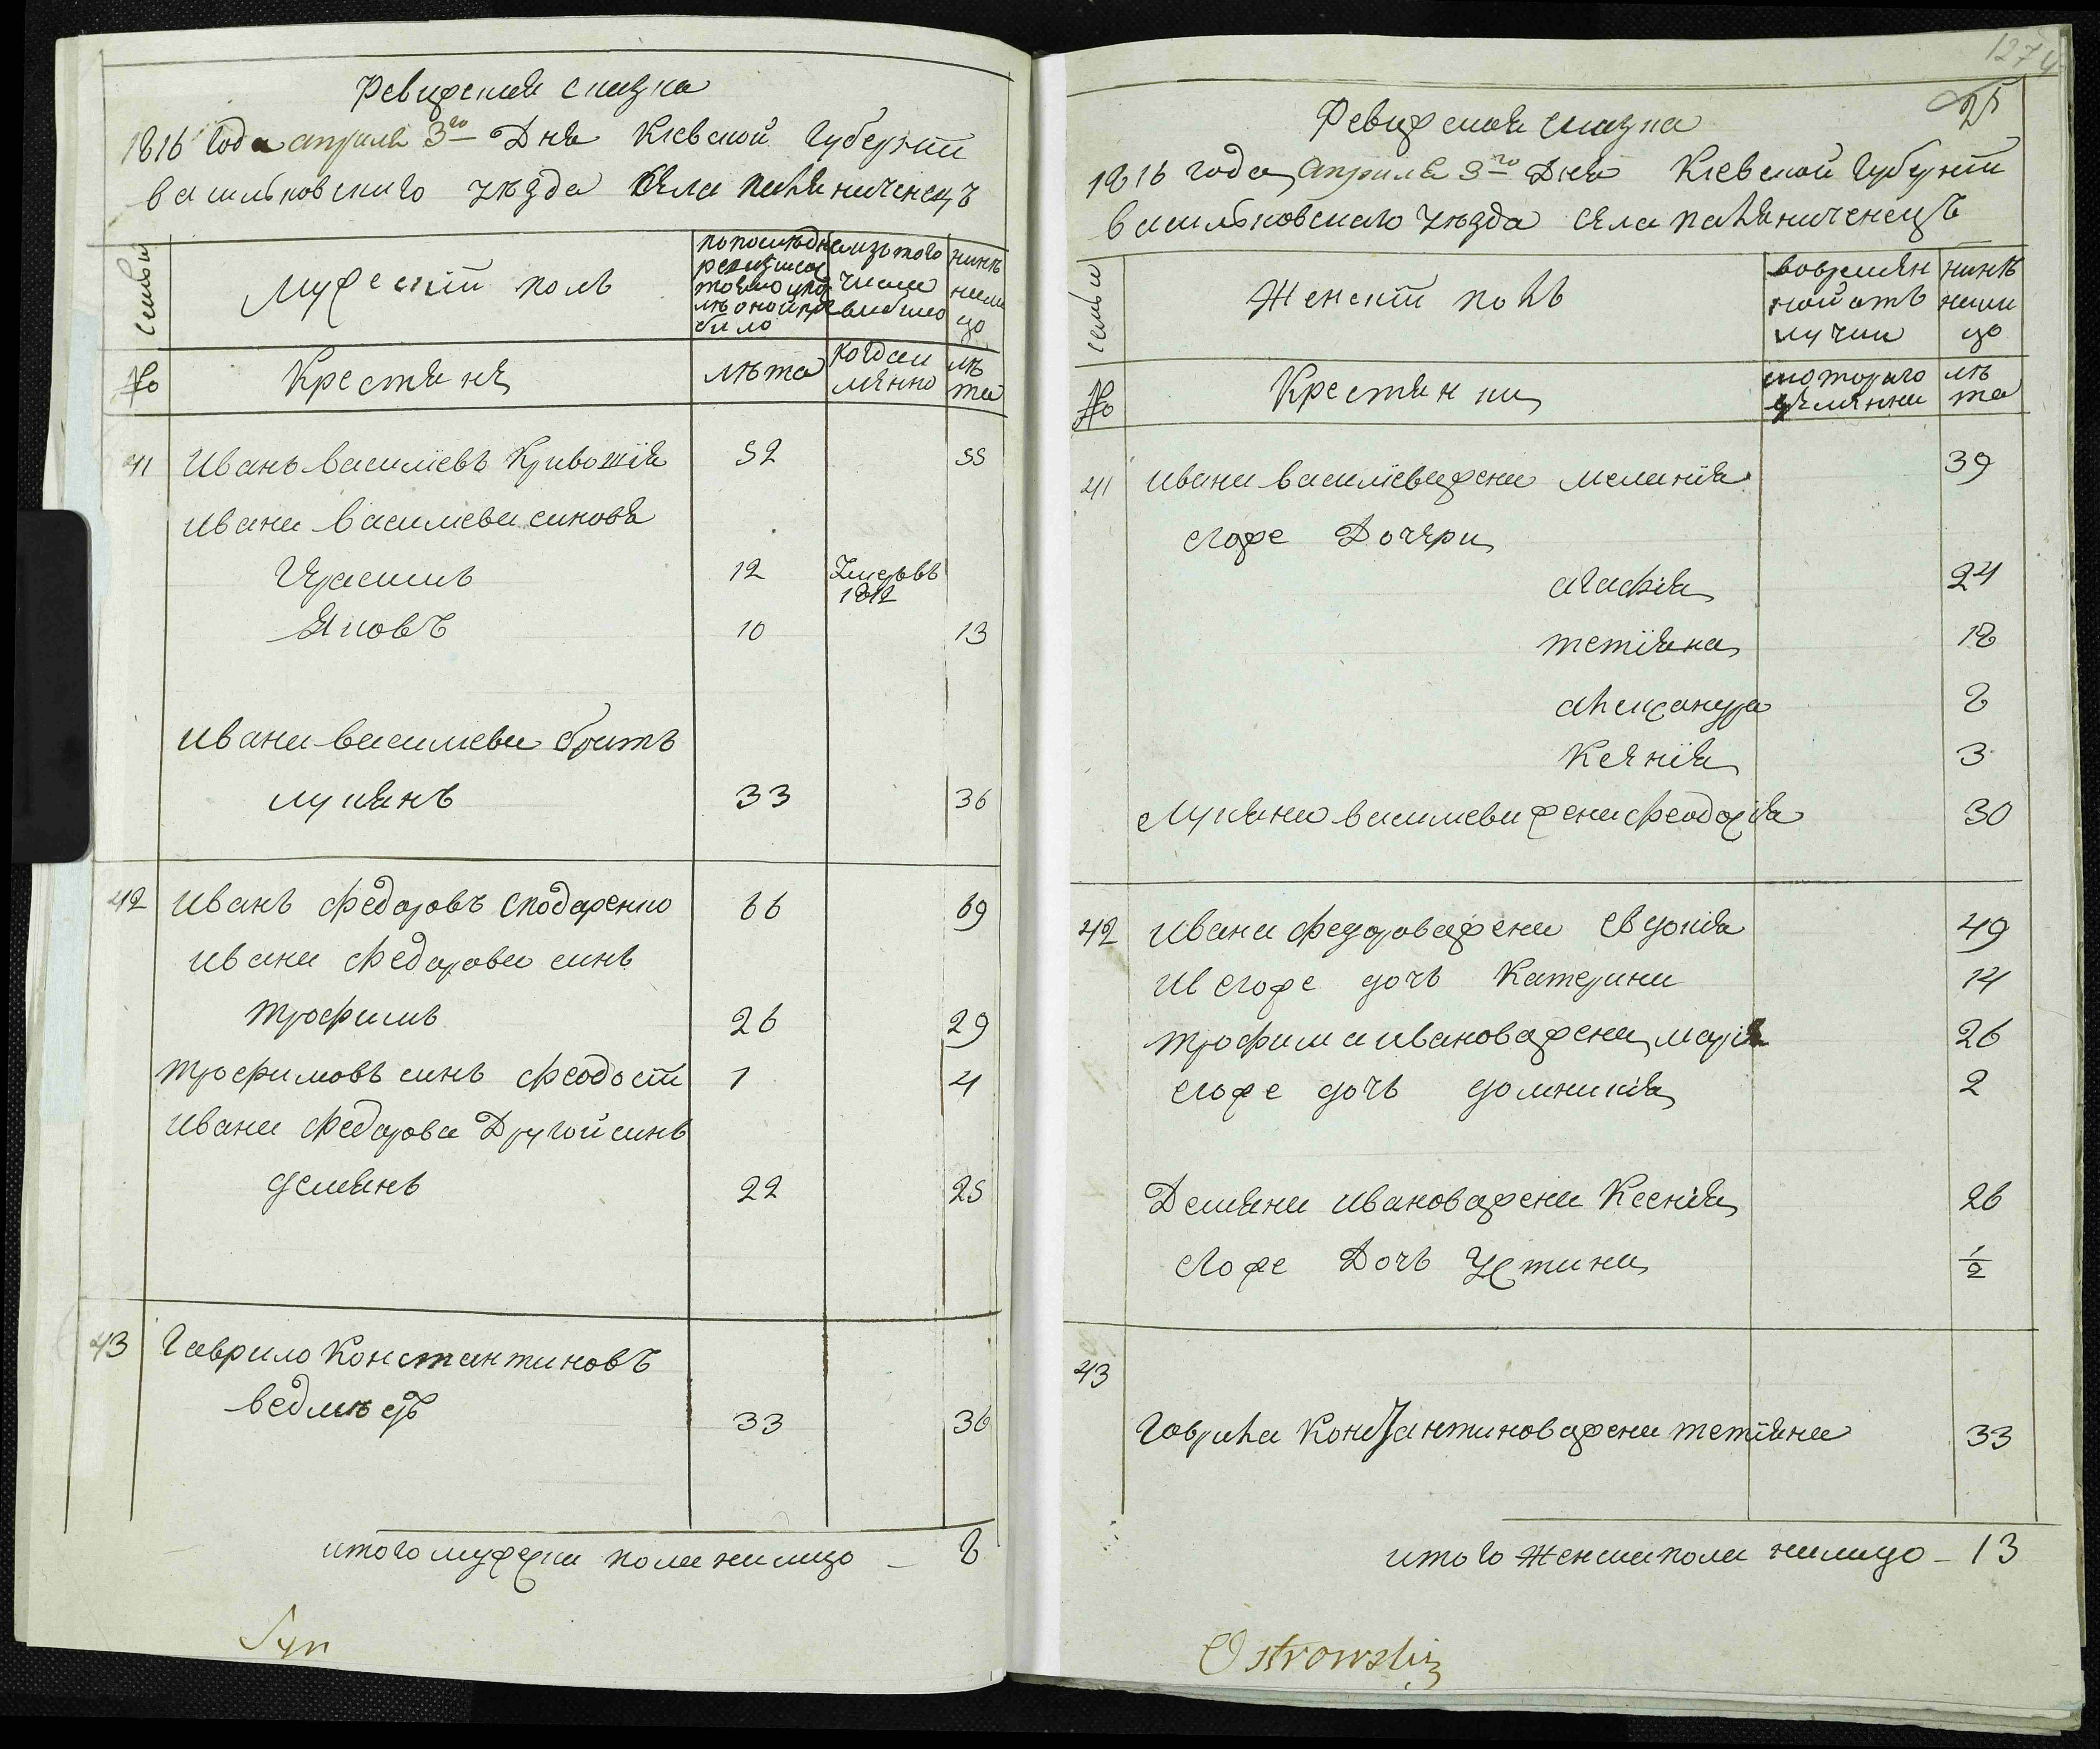 Ревизская сказка
1816 года апреля 3го Дня Кіевской Губерніи
васильковского уѣзда села палѣниченецъ
семьи
Мужескій полъ
По последней ревизіи состояло и после оной прибыло
изъ того числа выбыло
нынѣ налицо
№
Крестяне
лѣта
когда именно
лѣта
41 Иванъ василіевъ Кривошія 52 55
ивана василіева синовя
Герасимъ 12 Умерввъ 1812
Яковъ 10 13
ивана василиева братъ
лукянъ 33 36
42 иванъ федоровъ сподаренко 66 69
ивана федорова синъ
трофимъ 26 29
трофимовъ синъ феодосій 1 4
ивана федорова Другой синъ
демянъ 22 25
43 Гаврило Константиновъ
ведмѣдь 33 36
итого мужеска пола налицо – 8
Syn
1274
25
Ревизская сказка
1816 года апреля 3го Дня Кіевской Губерніи
васильковского уѣзда села палѣниченецъ
семьи
Женскій полъ
вовремян ной отъ лучки
нинѣ нали цо
№
Крестянки
скоторого времянни
лѣ та
41 ивана василіева жена меланія 39
егоже Дочери
агафія 24
тетіяна 18
александра 8
Ксенія 3
Лукяна василиева жена феодосія 30
42 ивана федорова жена евдокія 49
ивегоже дочь Катерина 14
трофима иванова жена марія 26
егоже дочь домникія 2
Демяна иванова жена Ксенія 26
егоже Дочь Устина 1/2
43
Гаврила Константинова жена тетіяна 33
итого женска пола налицо – 13
Ostrowskiego